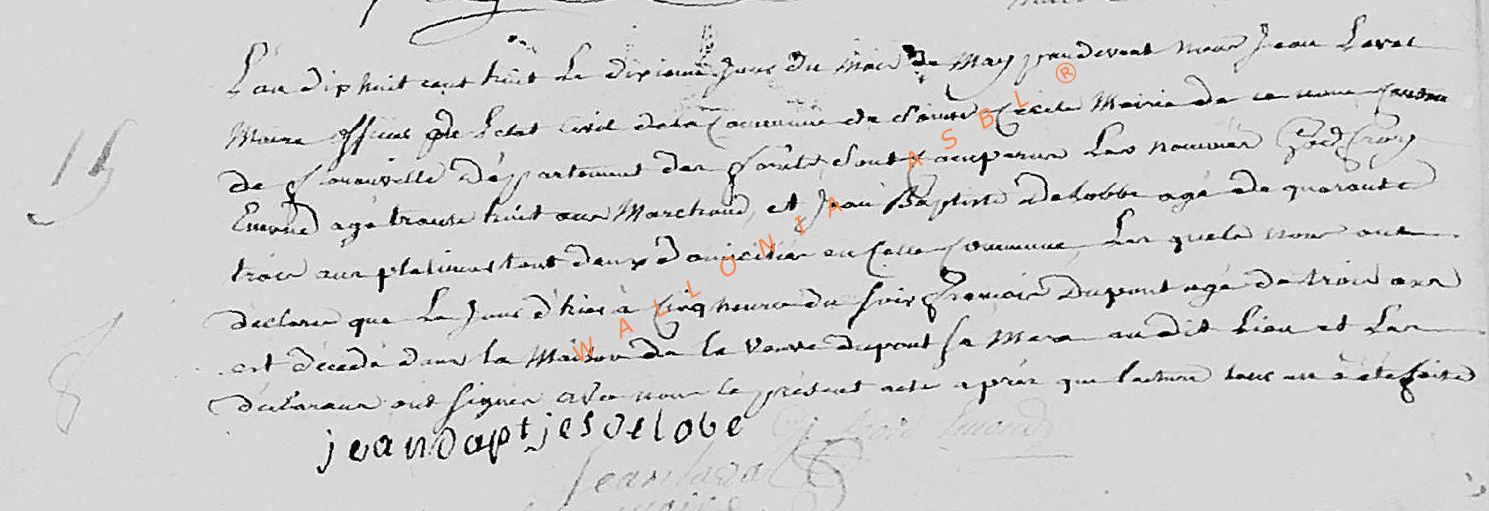 L'an dix huit cent huit Le dixieme Jour du mois de May pardevant nous Jean Laval
15
Maire officier de L'etat Civil de la Commune de Sainte Cécile Mairie de canton
de Florenville Département des forêts, sont comparus Les nommés
Emond agé trente huit ans Marchand, et Jean Baptiste Delobbe agé de quarante
trois ans tout deux domiciliés en celle Commune, Les quels nous ont
déclaré que Le Jour d'hier à Cinq heures du soir François Dupont agé de trois ans
est décédé dans la Maison de la Veuve dupont sa Mere audit Lieu et Les
8
déclarans ont signés avec nous le présent acte après que lecture leur en a été faite
jeanbaptjesdelobe
Emond
Jean Laval
maire
WALLONIA ASBL ®